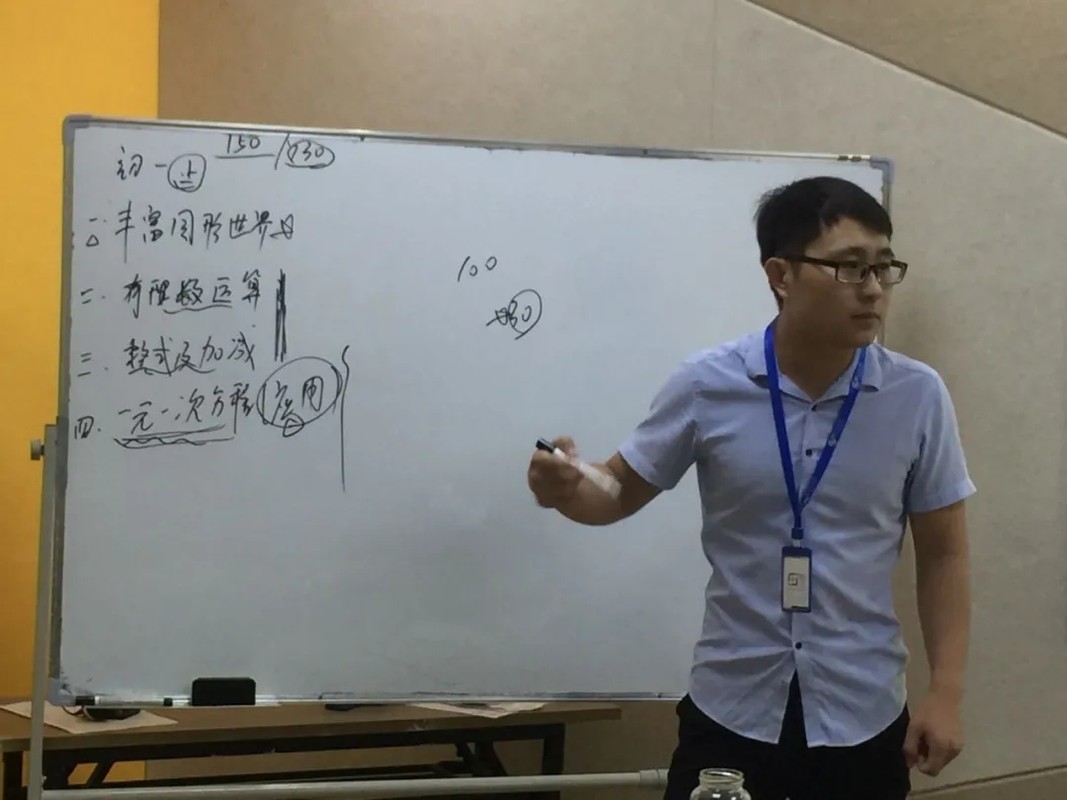 初一上 150/
一. 丰富图形世界
二. 有理数运算
三. 整式及加减
四. 一元一次方程 应用
100